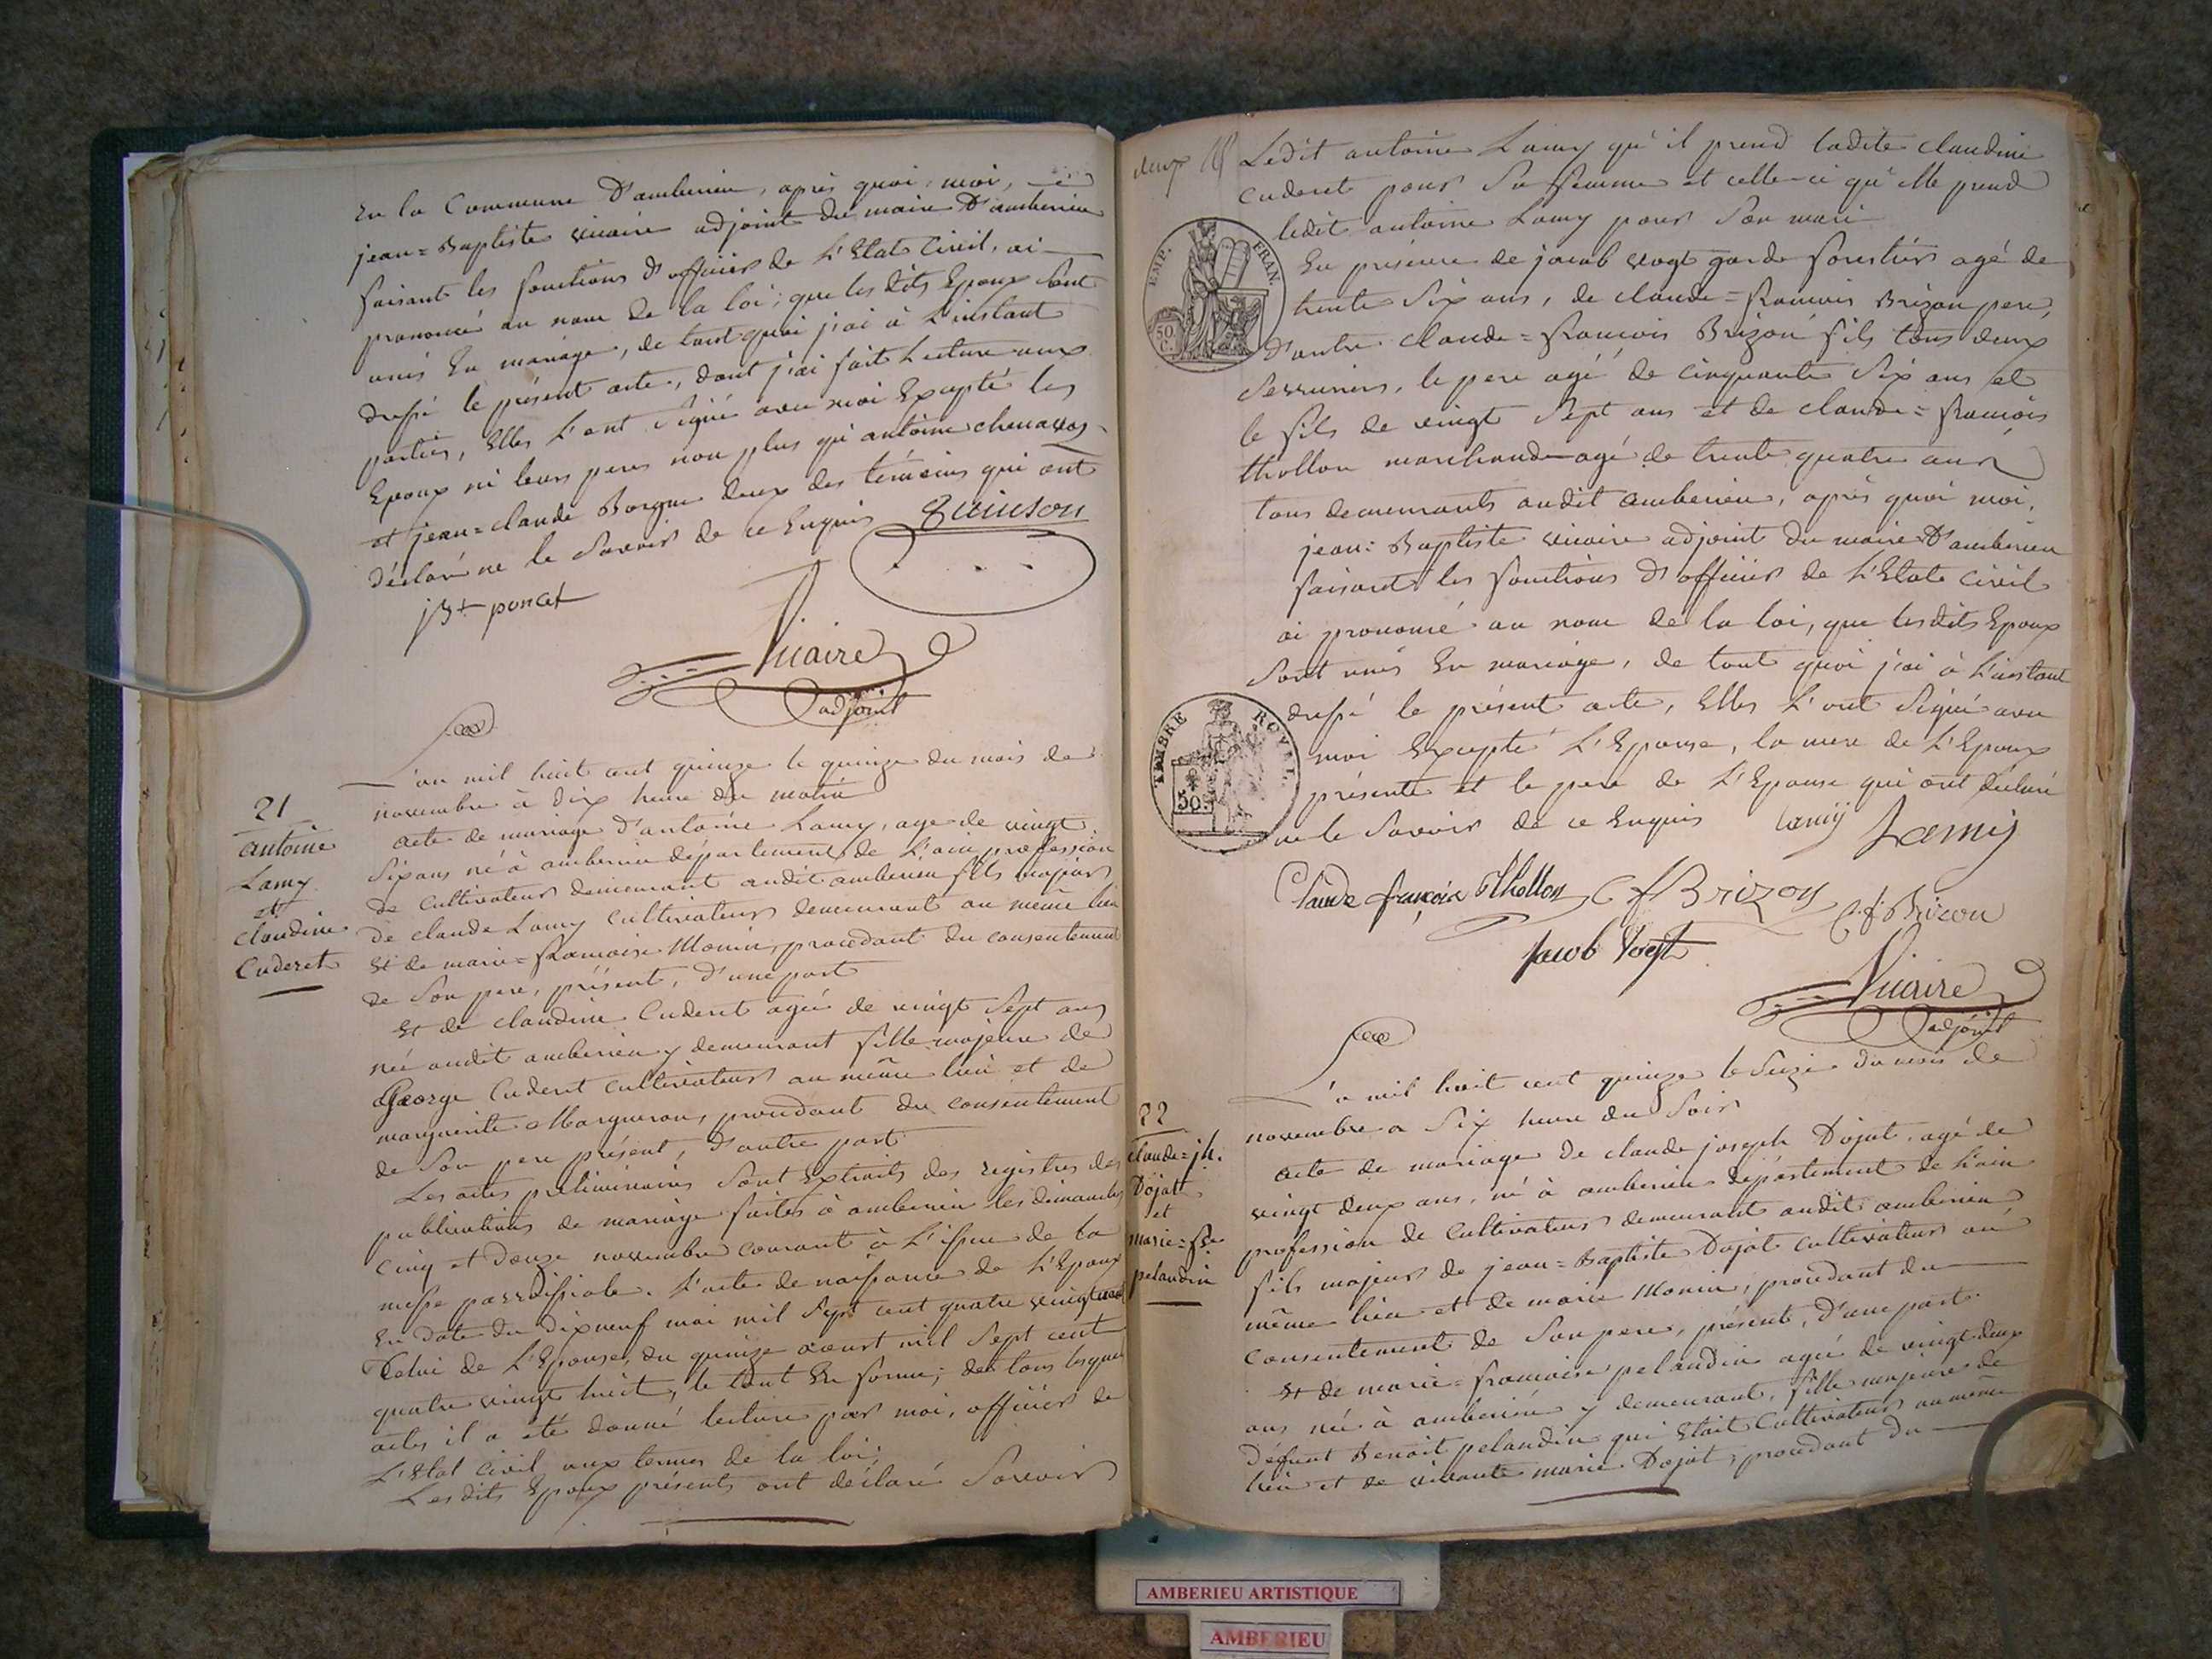 en la Commune D'amberieu, après quoi, moi,
jean=Baptiste vicaire adjoint du maire D'amberieu
faisant les fonctions d'officier de L'Etat Civil, ai
prononcé au nom de la loi; que les dits Epoux sont
unis En mariage, de tout quoi j'ai à L'instant
dressé le présent acte, dont j'ai fait Lecture aux
parties, Elles L'ont signé avec moi Excepté les
Epoux ni leurs peres non plus qu'antoine chenavas
et jean=claude Borgne deux des témoins qui ont
déclaré ne le Savoir de ce Enquis
jBt poncet
Vicaire
adjoint
L'an mil huit cent quinze le quinze du mois de
novembre à dix heure du matin
21
antoine
Lamy
et
claudine
Cuderet
acte de mariage d'antoine Lamy, age de vingt
Six ans né à amberieu département de L'ain profession
de Cultivateur demeurant audit amberieu fils majeur
de claude Lamy Cultivateur demeurant au même lieu
Et de marie=francoise Monin, procedant du consentement
de Son pere, présent, d'une part
Et de claudine Cuderet agée de vingt Sept ans
née audit amberieu y demeurant fille majeure de
George Cuderet Cultivateur au même lieu et de
marguerite Margueron, procedant du consentement
de Son pere présent, d'autre part
Les actes préliminaires Sont Extraits des registres des
publications de mariage faites à amberieu les dimanches
Cinq et Douze novembre courant à L'issue de la
messe parroissiale. L'acte de naissance de L'Epoux
En date du dixneuf mai mil Sept cent quatre vingt neuf
Celui de L'Epouse, du quinze aoust mil Sept cent
quatre vingt huit, le tout En forme; de tous lesquels
actes il a eté donné lecture par moi, officier de
L'Etat Civil aux termes de la loi.
Lesdits Epoux présents ont déclaré Savoir
deux
Ledit antoine Lamy qu'il prend ladite claudine
Cuderet pour Sa femme et celle-ci qu'elle prend
ledit antoine Lamy pour Son mari
EMP. FRAN.
50
C.
En présence de jacob vogt garde forestier agé de
trente Six ans, de claude=francois Brizon pere,
d'autre claude=francois Brizon fils tous deux
Serruriers, le pere agé de cinquante Six ans et
le fils de vingt Sept ans et de claude=francois
thollon marchand agé de trente quatre ans
tous demeurants audit amberieu, après quoi moi,
jean=Baptiste vicaire adjoint du maire D'amberieu
faisant les fonctions d'officier de L'Etat Civil
ai prononcé au nom de la loi, que lesdits Epoux
Sont unis En mariage, de tout quoi j'ai à L'instant
TIMBRE ROYAL
50
dressé le présent acte, Elles L'ont Signé avec
moi Excepté L'Epouse, la mere de L'Epoux
présente et le pere de L'Epouse qui ont déclaré
ne le Savoir de ce Enquis Lamy Lamy
Claude françois thollon C f Brizon C. f. Brizon
jacob Vogt
Vicaire
adjoint
L'an mil huit cent quinze le Seize du mois de
novembre a Six heure du Soir
22
claude=jh.
Dojat
et
marie=fse
pelandin
acte de mariage de claude joseph Dojat, agé de
vingt deux ans, né à amberieu département de L'ain
profession de Cultivateur demeurant audit amberieu
fils majeur de jean=Baptiste Dojat Cultivateur au
même lieu et de marie Monin, procedant du
Consentement de Son pere, présent, D'une part.
Et de marie=francoise pelandin agée de vingt-deux
ans née à amberieu y demeurant, fille majeure de
défunt Benoit pelandin qui Etait Cultivateur au même
lieu et de vivante marie Dojat, procedant du
AMBERIEU ARTISTIQUE
AMBERIEU